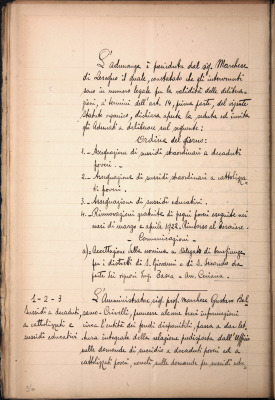 L'adunanza è presieduta dal sig. Marchese
di Seragno il quale, constatato che gli intervenuti
sono in numero legale per la validità delle delibera-
zioni, a termini dell'art. 14, prima parte, del vigente
Statuto organico, dichiara aperta la seduta ed invita
gli Adunati a deliberare sul seguente:
Ordine del giorno:
1.- Assegnazione di sussidi straordinari a decaduti
poveri. -
2.- Assegnazione di sussidi straordinari a cattolizza-
ti poveri.
3.- Assegnazione di sussidi educativi.
4.- Rinnovazioni gratuite di pegni poveri eseguite nei
mesi di marzo e aprile 1922. Rimborso al Tesoriere.
- Comunicazioni -
a). Accettazione della nomina a Delegato di beneficenza
per i distretti di S. Giovanni e di S. Secondo da
parte dei signori Ing. e Avv.
1 - 2 - 3
Sussidi a decaduti,
a cattolizzati e
sussidi educativi
L'Amministratore, sig. prof. marchese Gustavo Bal-
samo-Crivelli, premesse alcune brevi informazioni
circa l'entità dei fondi disponibili, passa a dar let-
tura integrale della relazione predisposta dall'Ufficio
sulle domande di sussidio a decaduti poveri ed a
cattolizzati poveri, nonché sulle domande per sussidi edu-